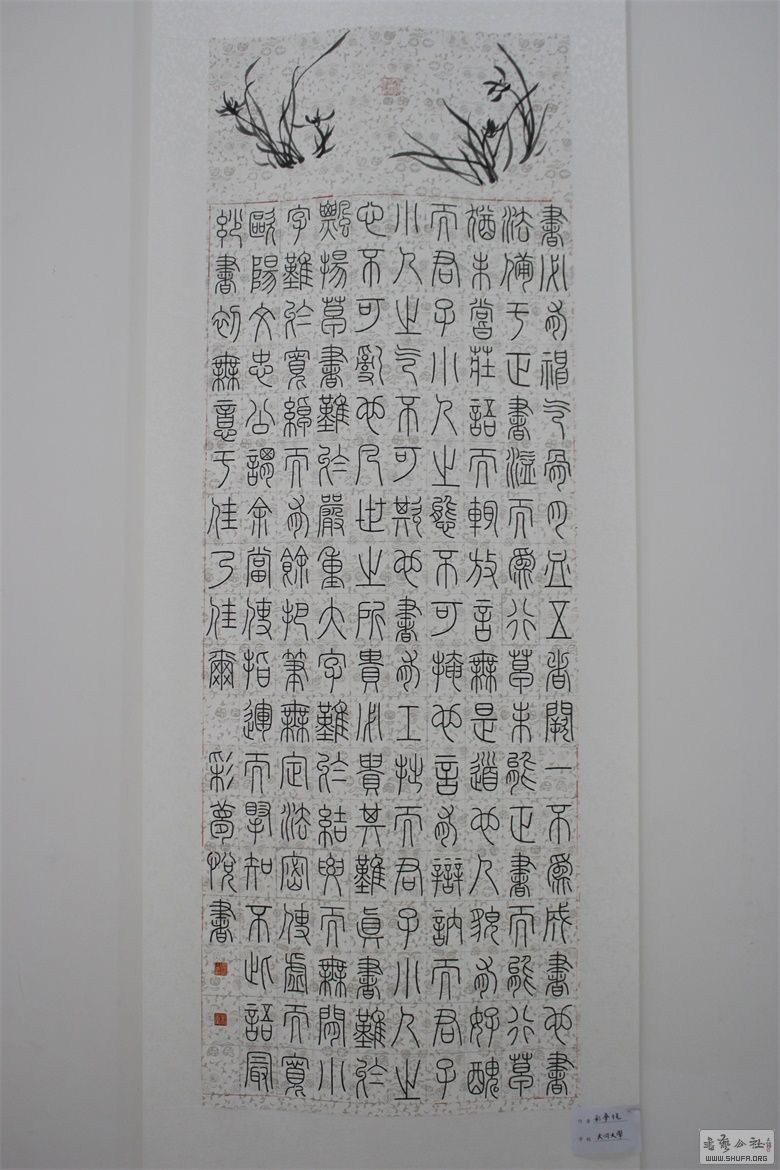 書必有神氣骨肉血五者闕一不為成書也書
法備于正書溢而為行草未能正書而能行草
猶未嘗莊語而輒放言無是道也人貌有好醜
而君子小人之態不可掩也言有辯訥而君子
小人之氣不可欺也書有工拙而君子小人之
心不可亂也凡世之所貴必貴其難真書難於
飄揚草書難於嚴重大字難於結而無間小
字難於寬綽而有餘把筆無定法密使虛而寬
歐陽文忠公謂余當使指運而掔知不此語最
妙書初無意于佳乃佳爾 彩夢悅書
大同大學
WWW.SHUFA.ORG